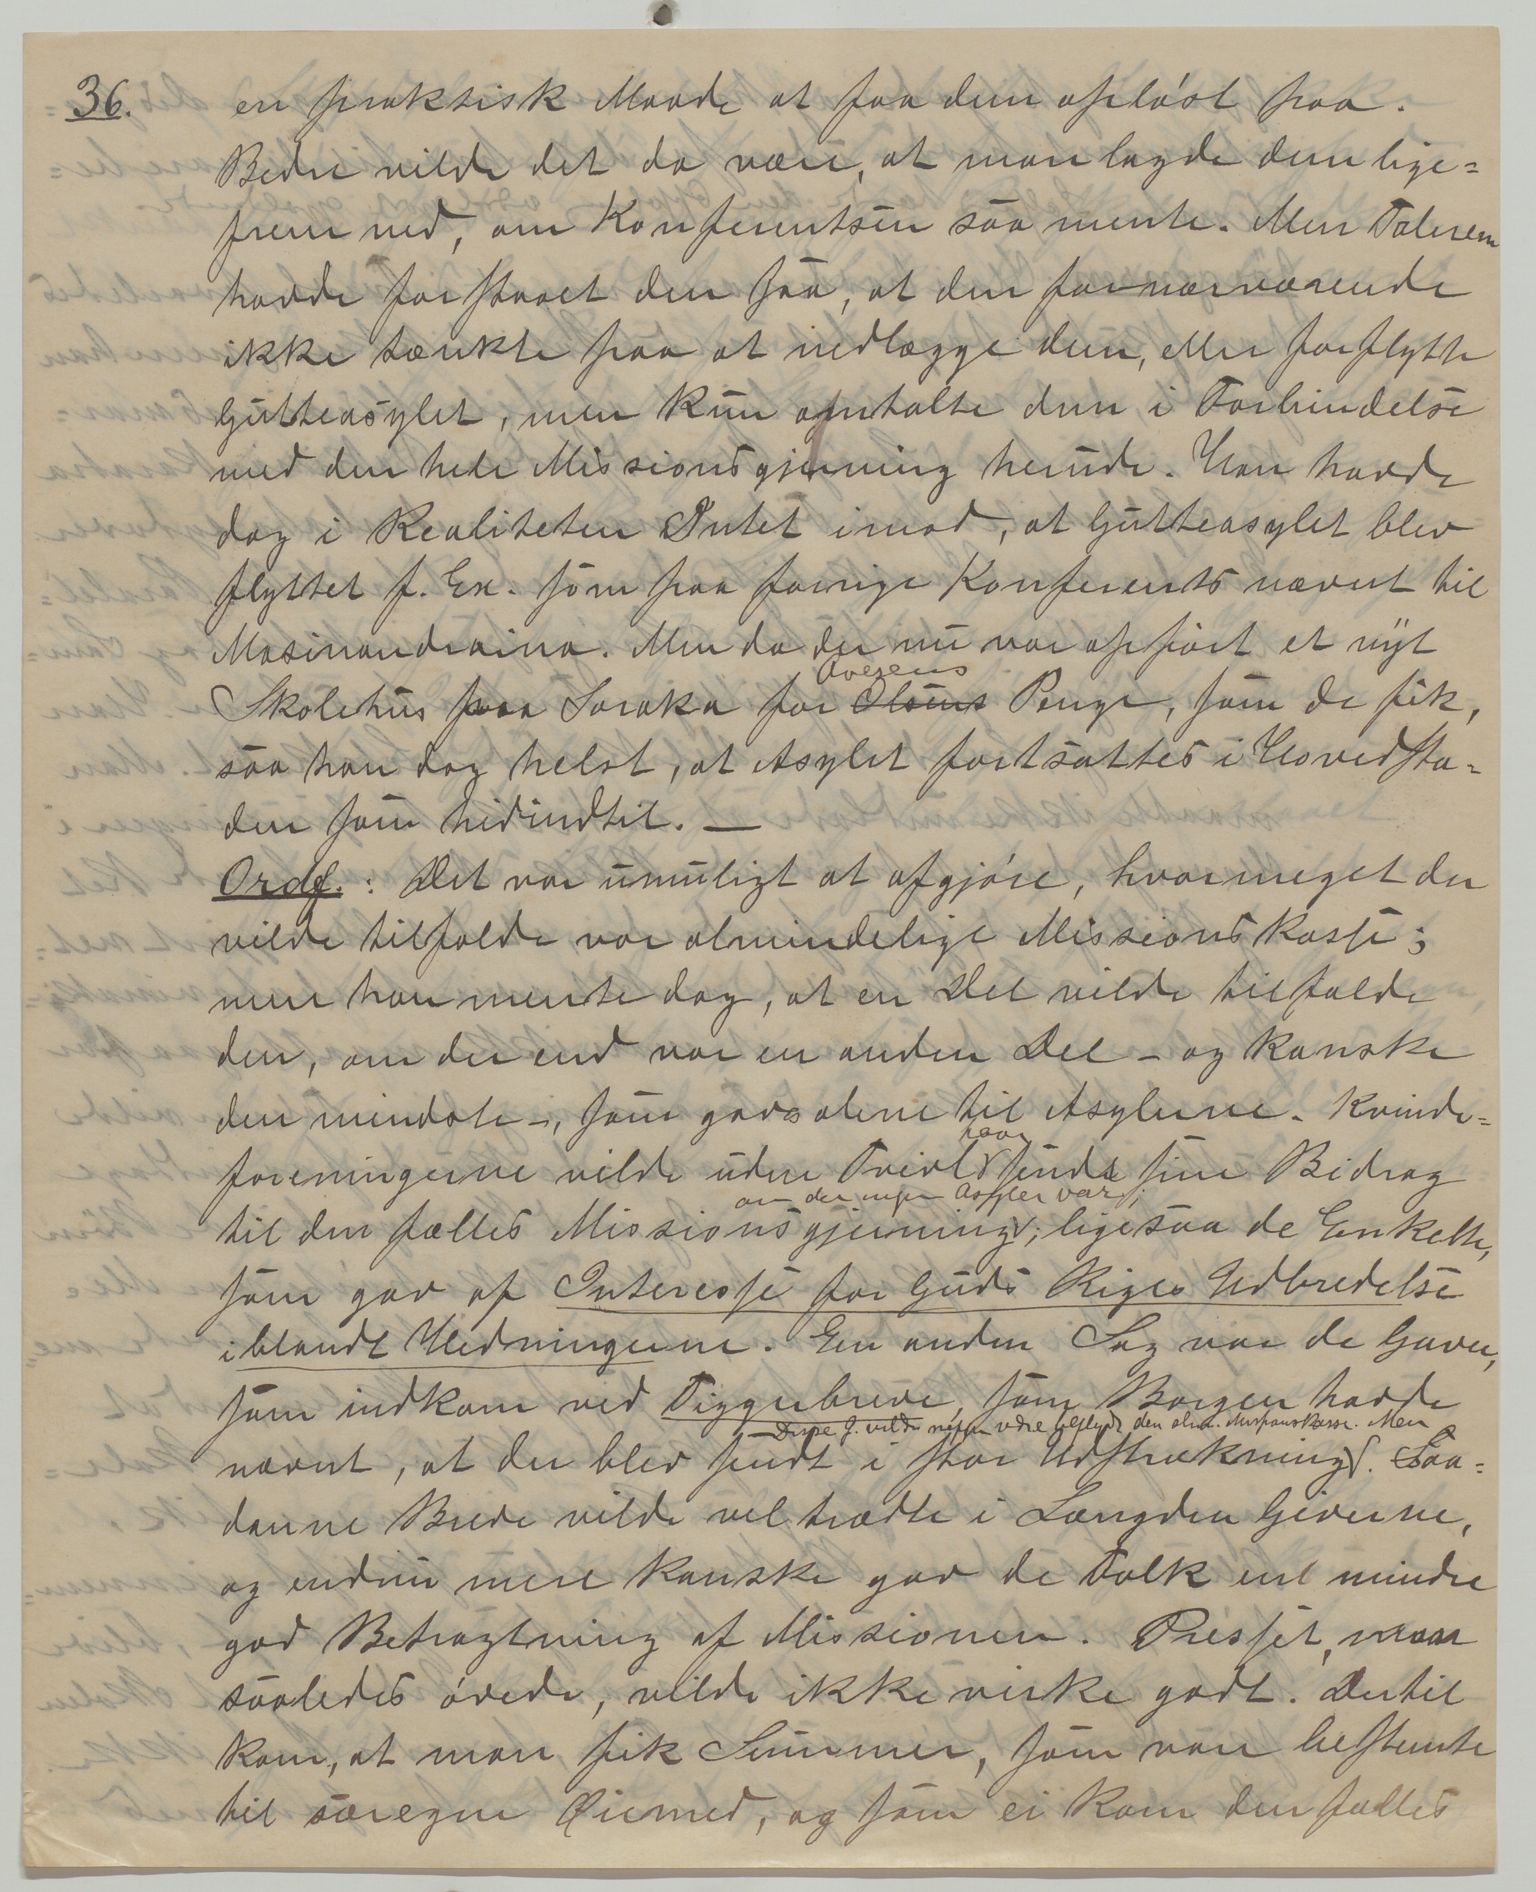 36. en praktisk Maade at faa dem opløst paa.
Bedre vilde det da være, at man lagde dem lige=
frem ned, om Konferentsen saa mente. Men Taleren
havde forstaaet den saa, at den fornærværende
ikke tænkte paa at nedlægge dem, eller forflytte
Gutteasylet, men kun omtalte dem i Forbindelse
med den hele Missionsgjerning herude. Han havde
dog i Realiteten Intet imod, at Gutteasylet blev
flyttet f. Ex. som paa forrige Konferents nævnt til
Masinandraina. Men da der nu var opført et nyt
Avegens
Skolehus paa Soraka for Olsens Penge, som de fik,
saa han dog helst, at Asylet fortsattes i Hovedsta=
den som hidindtil. —
Ordf.: Det var umuligt at afgjøre, hvormeget der
vilde tilfalde vor almindelige Missionskasse;
men han mente dog, at en Del vilde tilfalde
den, om der end var en anden Del – og kanske
den mindste –, som gaves alene til Asylerne. Kvinde=
foreningerne vilde uden Tvivl sende sine Bidrag
om der ingen Asyler var;
til den fælles Missionsgjerning; ligesaa de Enkelte,
som gav af Interesse for Guds Riges Udbredelse
iblandt Hedningerne. En anden Sag var de Gaver,
som indkom ved Tiggerbreve, som Borgen havde
Disse G. vilde neppe være tilflydt den alm. Missionskasse. Men
nævnt, at der blev sendt i stor Udstrækning. Saa=
danne Breve vilde vel trætte i Længden Giverne,
og endnu mere kanske gav de Folk en mindre
god Betragtning af Missionen. Presset, naar
saaledes øvede, vilde ikke virke godt. Dertil
kom, at man fik Summer, som vare bestemte
til særegne Øiemed, og som ei kom den fælles